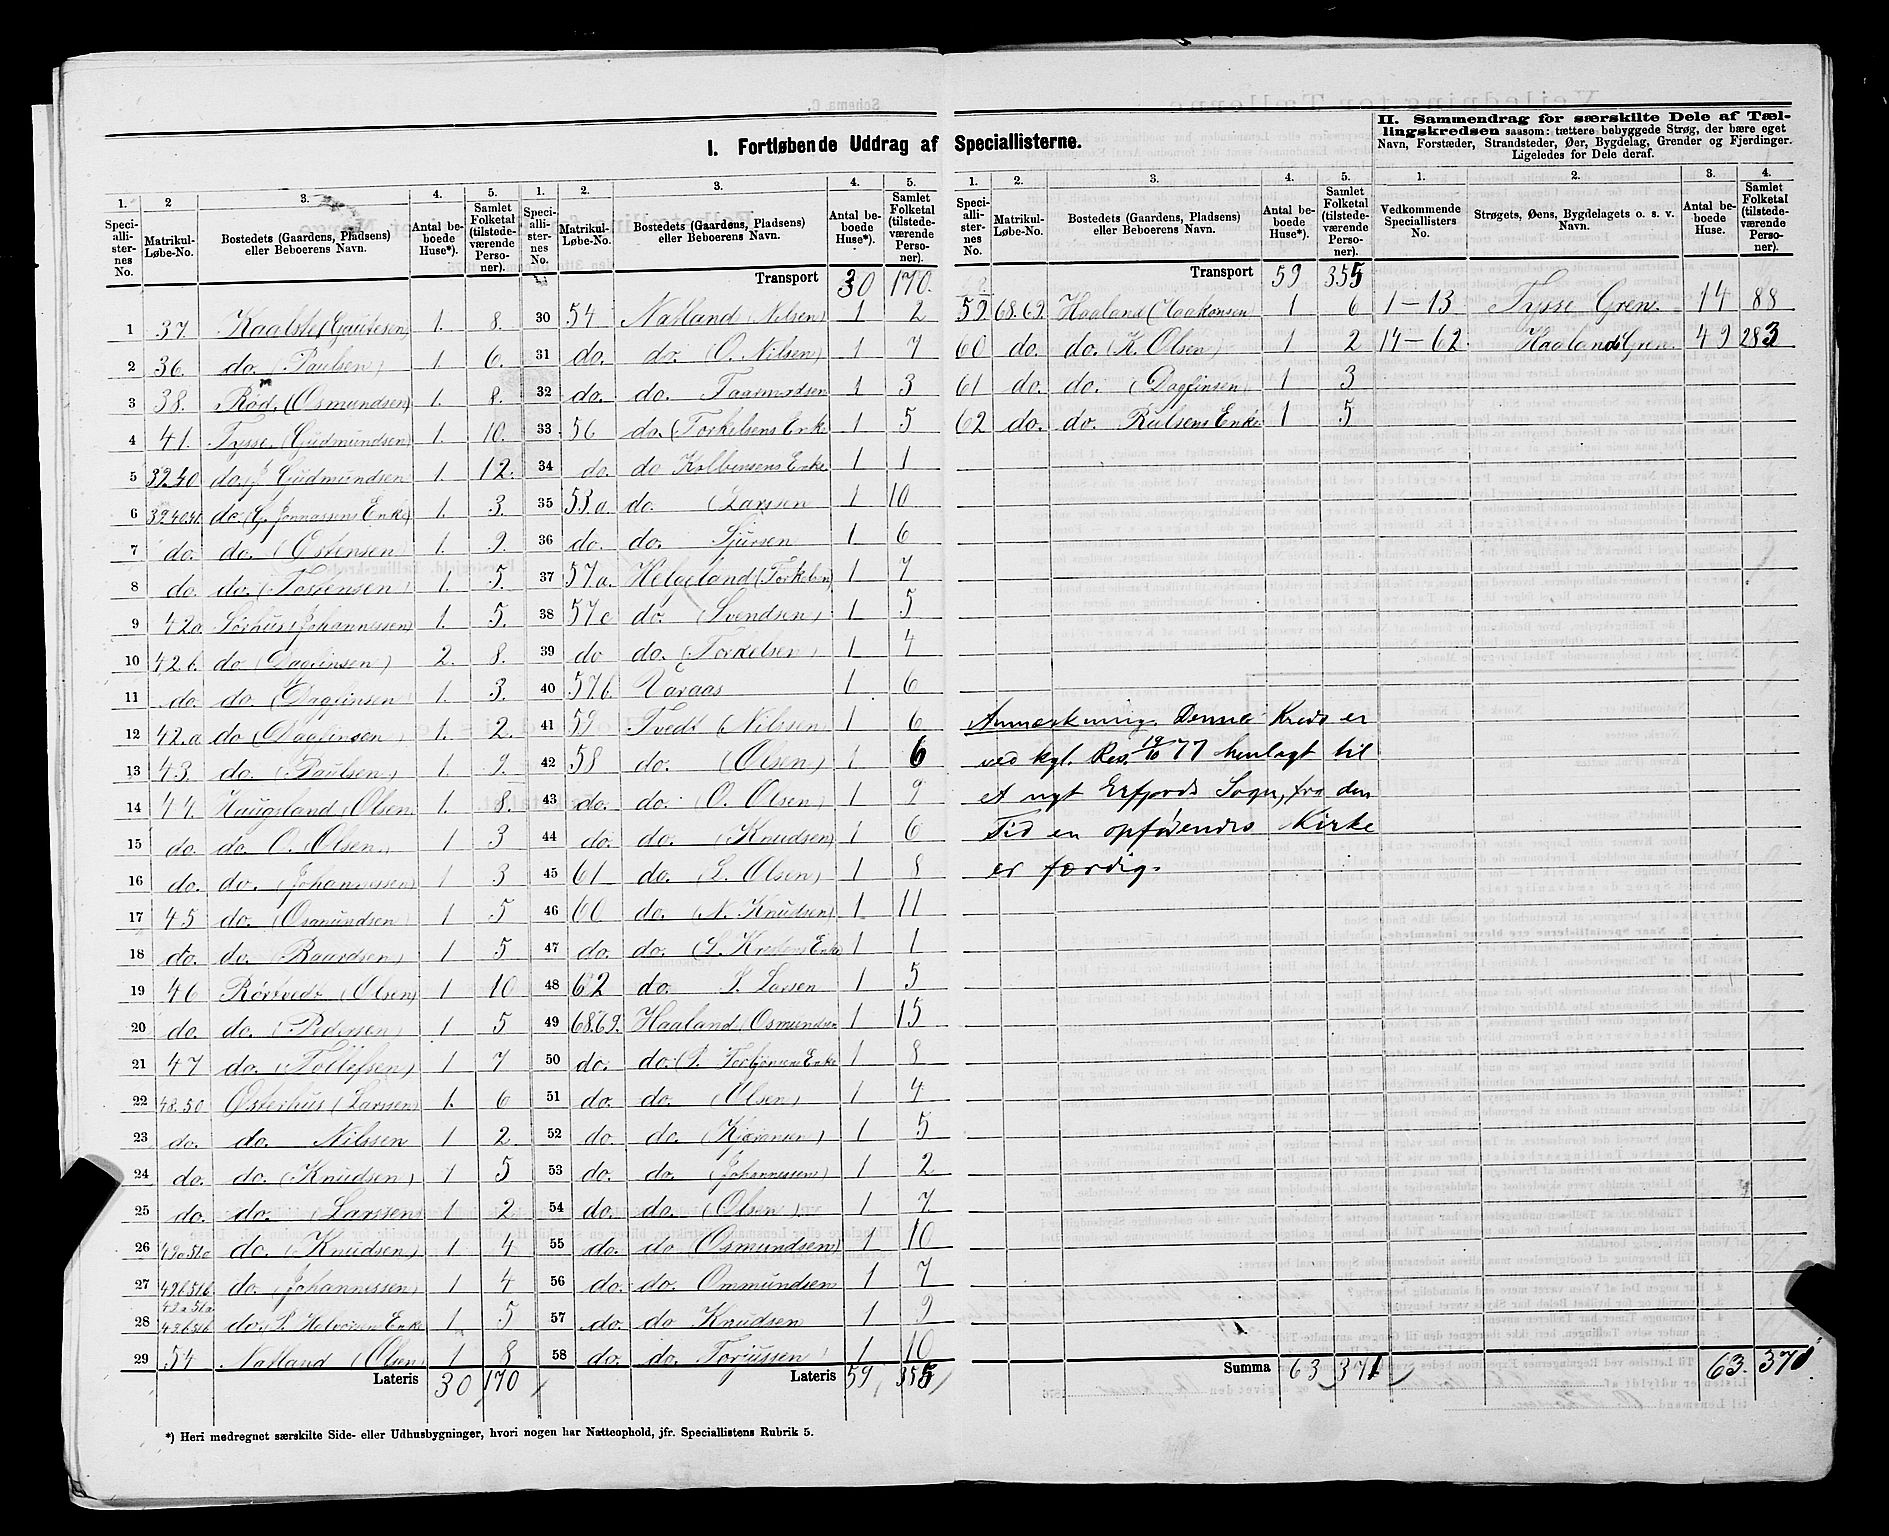 I. Fortløbende Uddrag af Speciallisterne.
II. Sammendrag for særskilte Dele af Tæl-
lingskredsen saasom: tættere bebyggede Strøg, der bære eget
Navn, Forstæder, Strandsteder, Øer, Bygdelag, Grender og Fjerdinger.
Ligeledes for Dele deraf.
1. 2 3. 4. 5.
Speci-alli-ster-nes No. Matrikul-Løbe-No. Bostedets (Gaardens, Pladsens) eller Beboerens Navn. Antal be-boede Huse*). Samlet Folketal (tilstede-værende Perso-ner).
1 37. Kaalste (Gautesen) 1. 8.
2 36. do. (Paulsen) 1. 6.
3 38. Rød. (Osmundsen) 1. 8.
4 41. Tysse (Gudmundsen) 1. 10.
5 39.40 do. J. Gudmundsen 1. 12.
6 39.40.41. do. (G. Jonnassens Enke) 1. 3.
7 do. do. (Ostensen 1. 9.
8 do. do. (Tostensen) 1. 5.
9 42a Sørhus (Johannessen) 1. 5.
10 42b. do (Dagfinsen) 2. 8.
11 do. do. (Dagfinsen 1. 3.
12 42.a do (Dagfinsen) 1. 2.
13 43. do. (Paulsen) 1. 9.
14 44. Haugsland (Olsen 1. 8.
15 do. do. O. Olsen) 1 3
16 do. do. (Johannessen) 1 3
17 45 do. (Osmundsen) 1 5
18 do. do. (Baardsen) 1 5
19 46 Rørtvedt (Olsen) 1 10
20 do. do. (Pedersen) 1 5
21 47 do. (Tollefsen) 1 7
22 48.50 Østerhus (Larssen) 1. 6
23 do. do. Nilssen 1 2
24 do. do. (Knudsen) 1 5
25 do. do. (Larssen 1 2
26 49a51a do. (Knudsen) 1 4
27 49b51b. do. (Johannessen) 1 4
28 49a51a 49b51b do. S. Halvorsens Enke 1 5
29 54 Natland (Olsen) 1 8
Lateris 30 170
1. 2. 3. 4. 5.
Speci-alli-ster-nes No. Matrikul-Løbe-No. Bostedets (Gaardens, Pladsens) eller Beboerens Navn. Antal be-boede Huse*). Samlet Folketal (tilstede-værende Perso-ner).
Transport 30 170.
30 54 Natland (Nilsen) 1 2
31 do. do. (O. Nilsen) 1 7
32 do. do. 1 3
33 56 do. (Torkelsens Enke 1 5
34 do. do Kolbensens Enke 1 1
35 53.a do. (Larssen 1 10
36 do. do. Sjursen 1 6
37 57.a. Helgeland (Torkelsen) 1 7
38 57c do. (Svendsen) 1 5
39 do do. (Torkelsen) 1 4
40 57b. Varaas 1 6
41 59 Tvedt (Nilssen) 1 6
42 58 do. (Olsen) 1 6
43 do. do. (O. Olsen) 1 9
44 do. do. (Knudsen) 1 6
45 61 do. (L. Olsen) 1 8
46 60 do. (N. Knudsen) 1 11
47 do. do. (S. Enke) 1 1
48 62 do. S. Larsen 1 5
49 68.69. Haaland (Osmundsen 1 15
50 do. do. Enke 1 8
51 do. do. (Olsen) 1 4
52 do. do. 1 5
53 do. do. (Johannessen) 1 2
54 do. do. (Olsen). 1 7
55 do. do (Osmundsen) 1 10
56 do. do. Ommundsen 1 7
57 do. do Knudsen 1 9
58 do. do. Torjussen 1 10
Lateris 59 355
1. 2. 3. 4. 5.
Speci-alli-ster-nes No. Matrikul-Løbe-No. Bostedets (Gaardens, Pladsens) eller Beboerens Navn. Antal be-boede Huse*). Samlet Folketal (tilstede-værende Perso-ner).
Transport 59 355
59 68.69. Haaland (Haakonsen 1 6
60 do. do. (K. Olsen) 1 2
61 do. do. (Dagfinsen) 1 3
62 do. do. Enke 1 5
Anmærkning. Denne Kreds er
ved kgl. Res. 19/10 77 henlagt til
et nyt Erfjords Sogn, fra den
Tid en opførendes Kirke
er færdig.
Summa 63 371
1. 2. 3. 4.
Vedkommende Speciallisters No. Strøgets, Øens, Bygdelagets o. s. v. Navn. Antal beboede Huse. Samlet Folketal (tilstede-værende Perso-ner).
1-13 Tysse Gren. 14 88
14-62. Haalands Gren 49 283
63. 371
*) Heri medregnet særskilte Side- eller Udhusbygninger, hvori nogen har Natteophold, jfr. Speciallistens Rubrik 5.